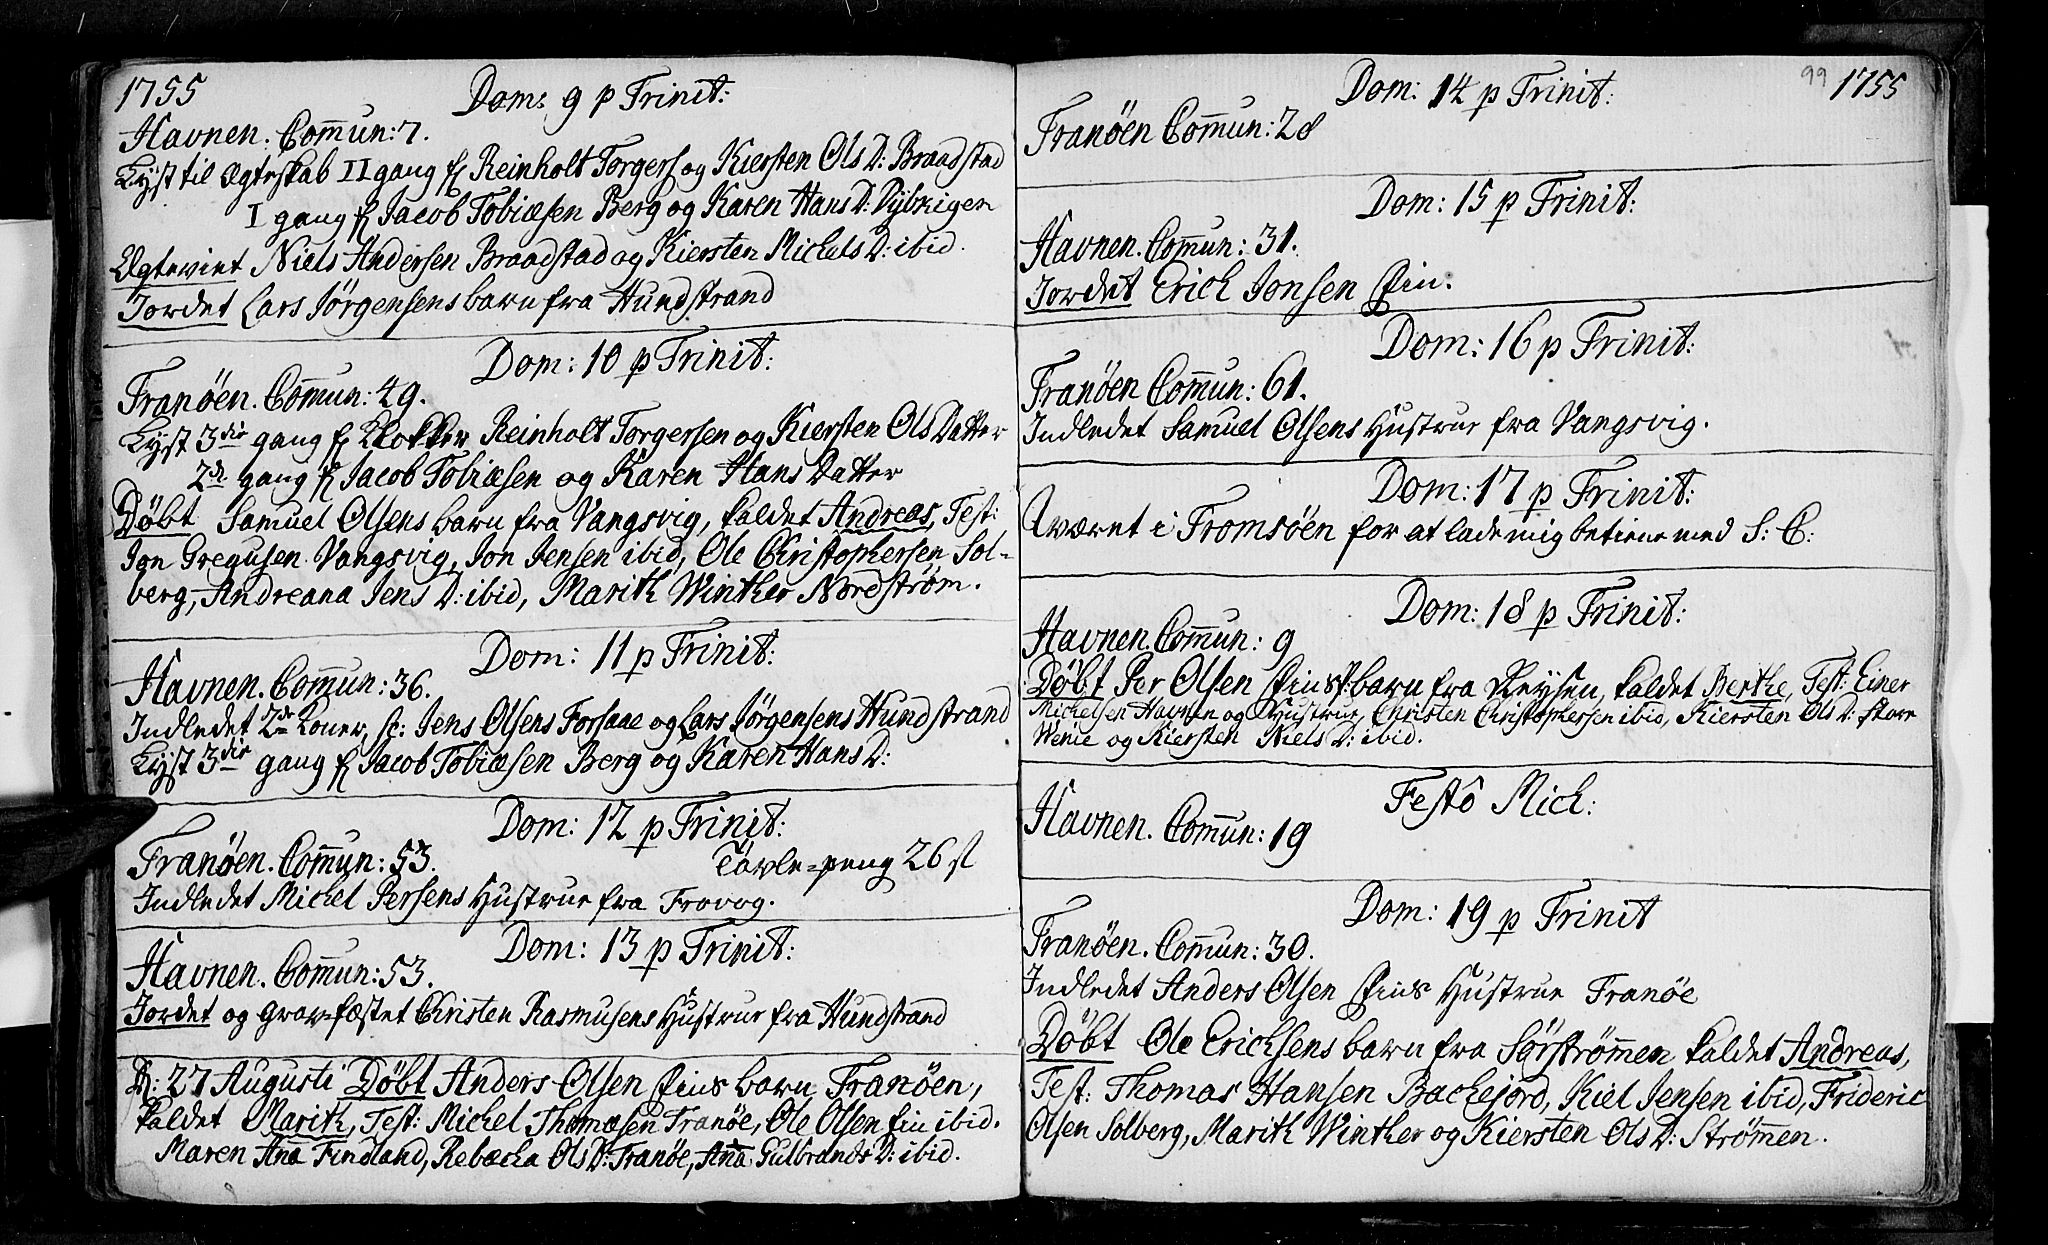 1755
Dom: 9 p Trinit:
Havnen. Com̄un: 7.
Lyst til Ægteskab II gang f Reinholt Torgers og Kiersten Ols D: Braadstad
I gang f Jacob Tobiæsen Berg og Karen Hans D:
Ægteviet Niels Andersen Braadstad og Kiersten Michels D: ibid.
Jordet Lars Jörgensens barn fra Hundstrand
Dom: 10 p Trinit:
Tranöen. Com̄un: 49.
Lyst 3die gang f Klokker Reinholt Torgersen og Kiersten Ols Datter
2de gang f Jacob Tobiæsen og Karen Hans Datter
Döbt Samuel Olsens barn fra Vangsvig, kaldet Andreas, Test:
Jon Gregusen Vangsvig, Jon Jensen ibid, Ole Christophersen Sol-
berg, Andreana Jens D: ibid, Marith Winther Nordström.
Dom: 11 p Trinit:
Havnen. Com̄un: 36.
Indledet 2de Koner, sc: Jens Olsens Forsaae og Lars Jörgensens Hundstrand
Lyst 3die gang f Jacob Tobiæsen Berg og Karen Hans D:
Dom: 12 p Trinit:
Tranöen. Com̄un: 53.
Tavle-peng 26 st
Indledet Michel Persens Hustrue fra Frovog.
Dom: 13 p Trinit:
Havnen. Com̄un: 53.
Jordet og gravfæstet Christen Rasmusens Hustrue fra Hundstrand
D: 27 Augusti Döbt Anders Olsen Fins barn Tranöen,
kaldet Marith, Test: Michel Thomæsen Tranöe, Ole Olsen Fin ibid.
Maren Ana Findland, Rebecha Ols D: Tranöe, Ana Gulbrands D: ibid.
99 1755
Dom: 14 p Trinit:
Tranöen Com̄un: 28
Dom: 15 p Trinit:
Havnen. Com̄un: 31.
Jordet Erich Jonsen Fin.
Dom: 16 p Trinit:
Tranöen Com̄un: 61.
Indledet Samuel Olsens Hustrue fra Vangsvig.
Dom: 17 p Trinit:
været i Tromsöen for at lade mig betiene med S: C:
Dom: 18 p Trinit:
Havnen. Com̄un: 9
Döbt Per Olsen Fins barn fra Reysen, kaldet Berthe, Test: Einer
Michelsen Havnen og Hustrue, Christen Christophersen ibid, Kiersten Ols D: store
Wenie og Kiersten Niels D: ibid.
Festô Mich:
Havnen. Com̄un: 19
Dom: 19 p Trinit
Tranöen. Com̄un: 30.
Indledet Anders Olsen Fins Hustrue Tranöe
Döbt Ole Erichsens barn fra Sörströmmen kaldet Andreas,
Test: Thomas Hansen Backejord, Kiel Jensen ibid, Frideric
Olsen Solberg, Marith Winther og Kiersten Ols D: Strömmen.